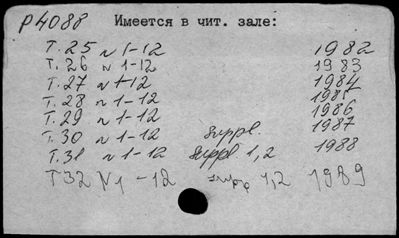 P4088 Имеется в чит. зале:
Т. 25 N 1-12 1982
Т. 26 N 1-12 1983
Т. 27 N 1-12 1984
Т. 28 N 1-12 1985
Т. 29 N 1-12 1986
Т. 30 N 1-12 suppl. 1987
Т. 31 N 1-12 suppl 1,2 1988
Т 32 N1-12 supp 1,2 1989